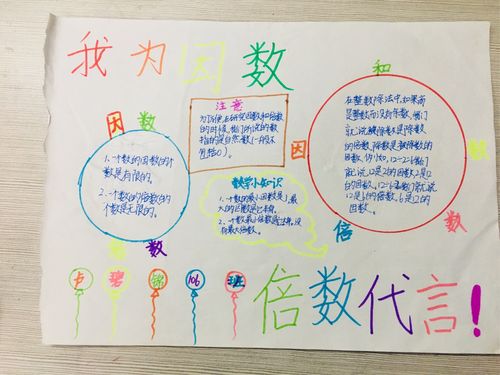 我为因数
和
因数
注意
为了方便,在研究因数和倍数
的时候,我们所说的数
指的是自然数(一般不
包括0)。
在整数除法中,如果商
是整数而没有余数,我们
就说被除数是除数
的倍数,除数是被除数的
因数。例如,12÷2=6我们
就说12是2的倍数,2是12
的因数。12÷6=2我们就说
12是6的倍数,6是12的
因数。
因
数
倍
1.一个数的因数的个
数是有限的。
2.一个数的倍数的
个数是无限的。
数学小知识
1.一个数的最小因数是1,最
大的因数是它本身。
2.一个数最小倍数是它本身,没
有最大倍数。
倍数
卢碧铭106班
倍数代言!